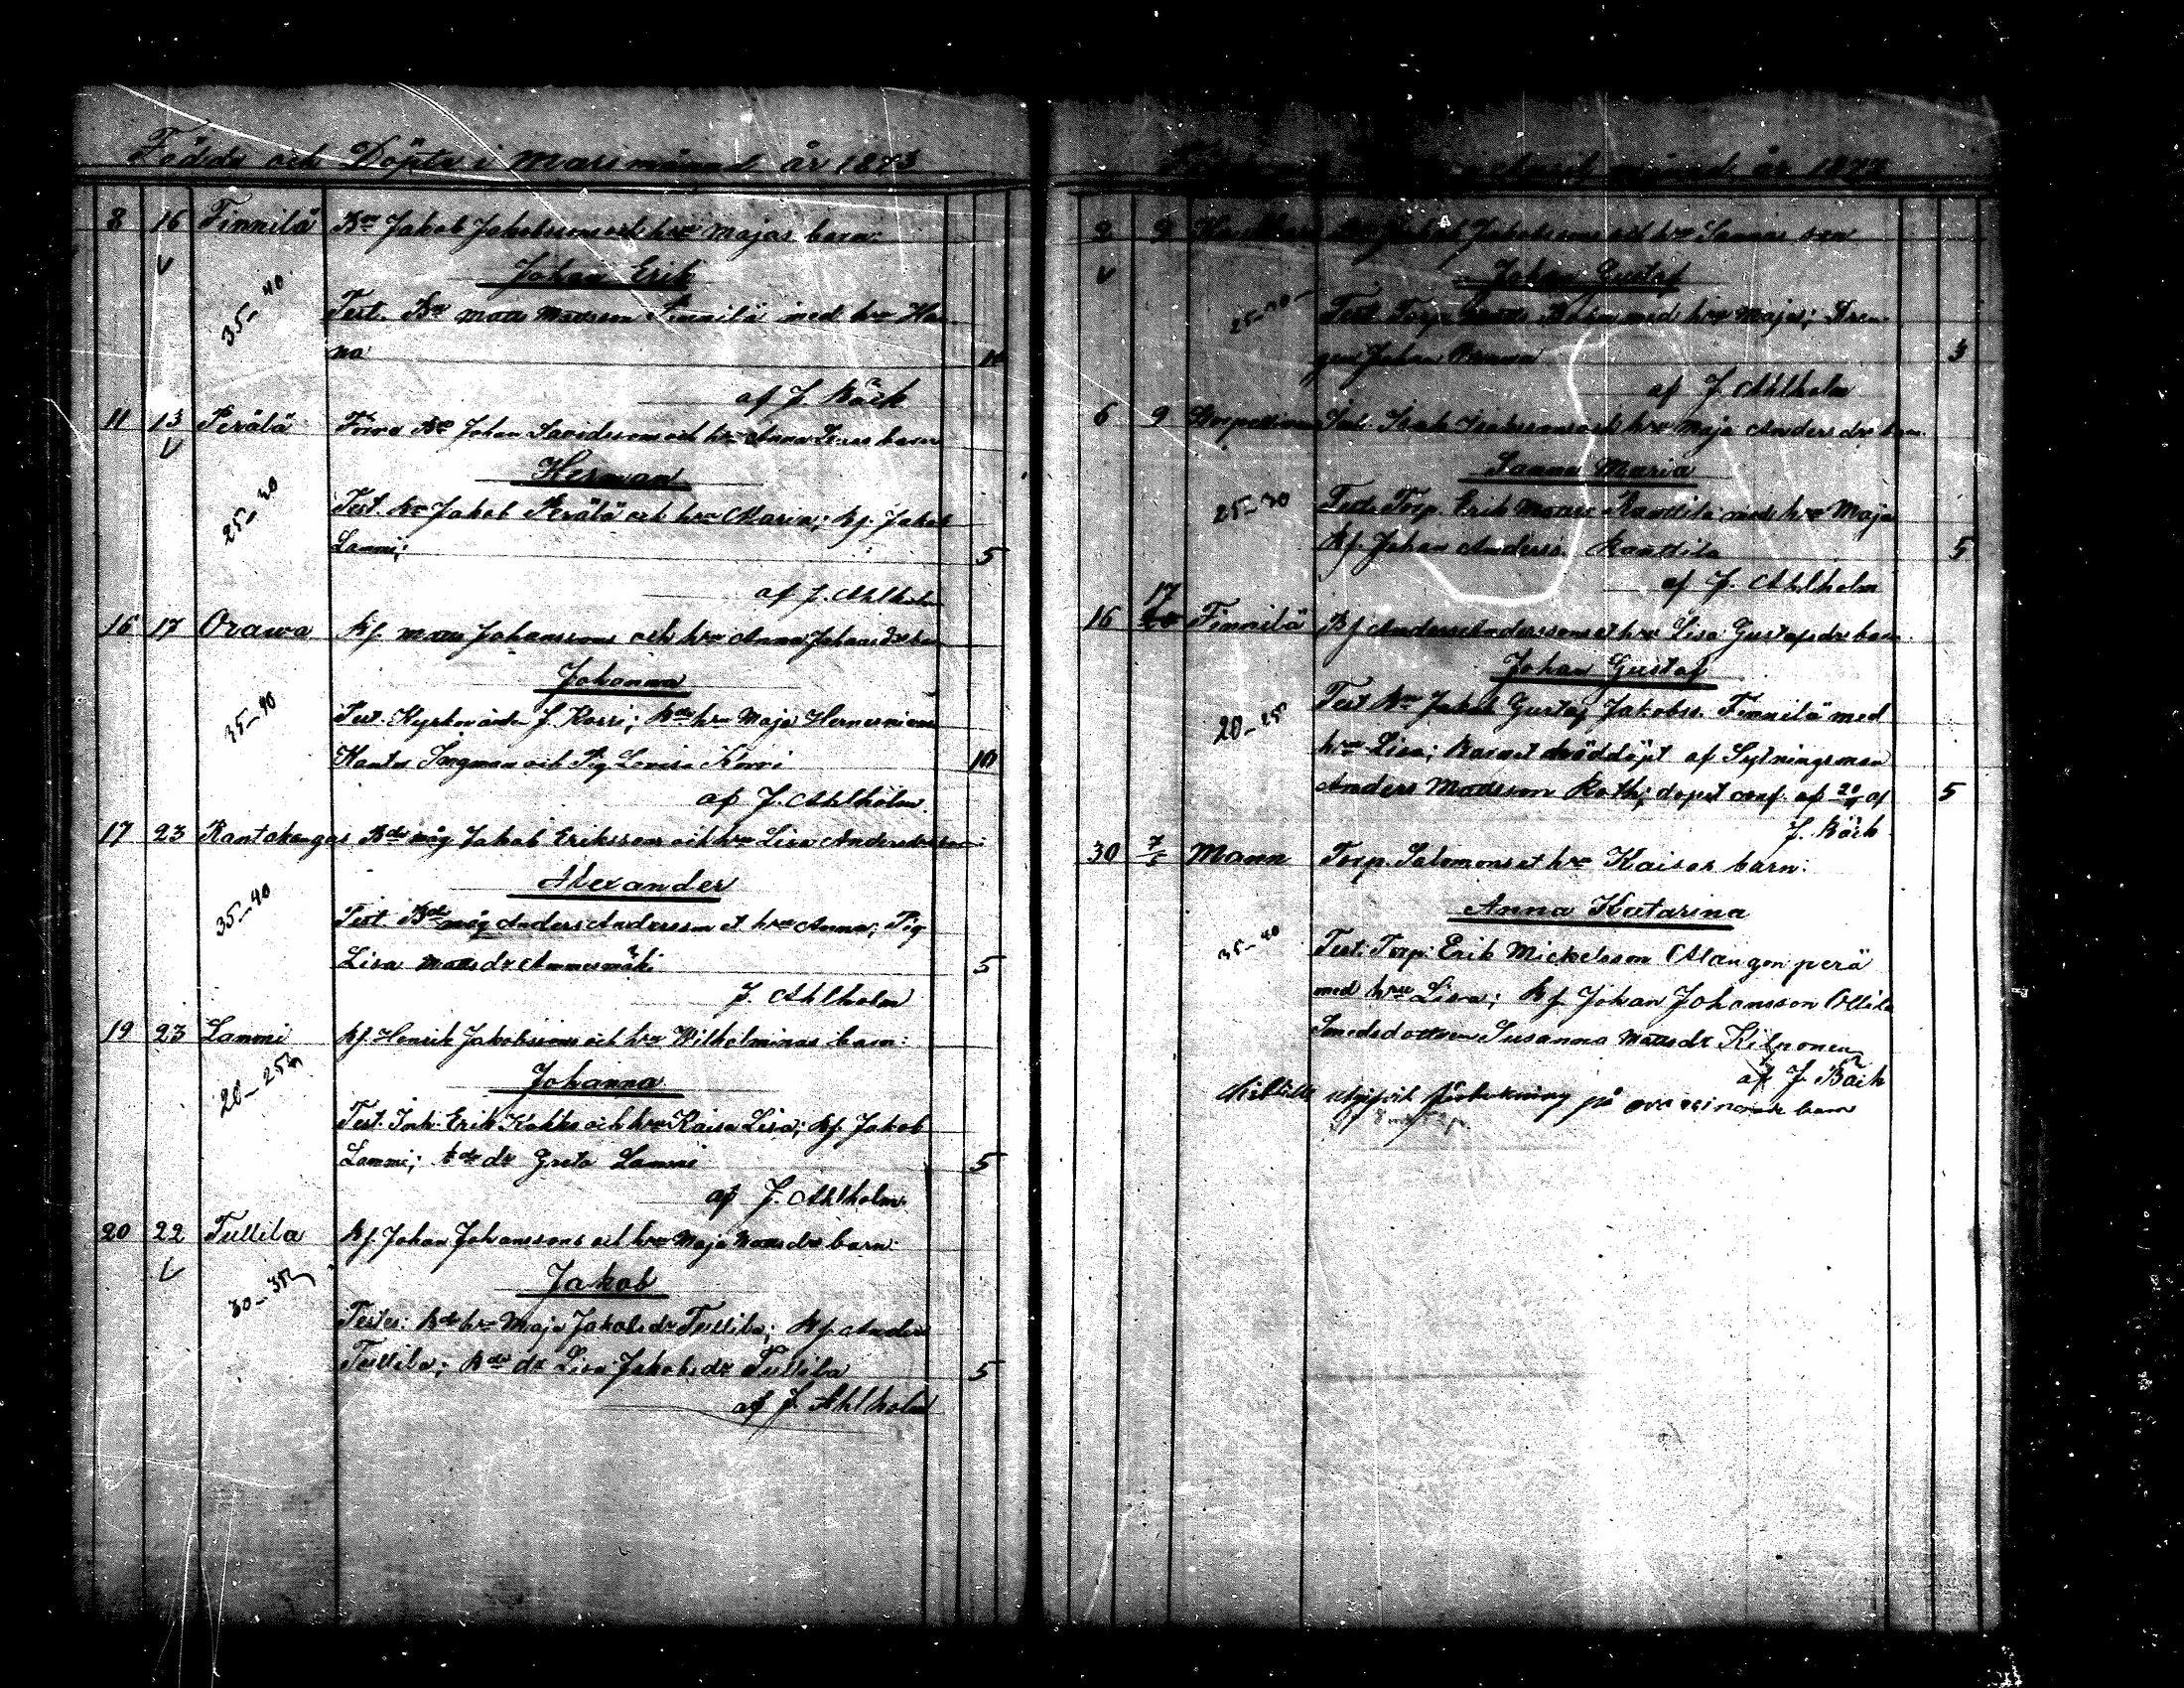 Födde och Döpte i Mars månad år 1873
8 16 Finnilä Bn Jakob Jakobssons och hru Majas barn:
Johan Erik
35-40
Test. Bn Matts Mattsson Finnilä med hru Han
na
af J. Bäck
11 13 Perälä Förra Bn Johan Davidssons och hru Anna Lisas barn
Herman
25-30
Test. Bn Jakob Perälä och hru Maria; Kf. Jakob
Lammi; 5
af J. Ahlholm
16 17 Orawa Kf. Matts Johanssons och hru Anna Johansdrs barn
Johanna
35-40
Test. Kyrkovärden J. Korri; Bde hru Maja Hernesniemi
Kantor Sangman och Pig Lovisa Korri 10
af J. Ahlholm
17 23 Rantakangas Bde måg Jakob Erikssons och hru Lisa Andersdrs barn:
Alexander
35-40
Test. Bde måg Anders Andersson et hru Anna; Pig
Lisa Mattsdr Ammesmäki 5
J. Ahlholm
19 23 Lammi Kf. Henrik Jakobssons och hru Wilhelminas barn:
20-25
Johanna
Test. Inh. Erik Kokko och hru Kaisa Lisa; Kf. Jakob
Lammi; Bde dr Greta Lammi 5
af J. Ahlholm
20 22 Tullila Kf. Johan Johanssons och hru Maja Mattsdrs barn:
30-35
Jakob
Testes: Bde hru Maja Jakobsdr Tullila; Kf. Anders
Tullila; Bde dr Lisa Jakobsdr Tullila 5
af J. Ahlholm
April månad år 1873
2 9 Jakob Jakobssons och hru Sannas
Johan Gustaf
Test. Torp. Matts med hru Maja; Dren
gen Johan 3
af J. Ahlholm
6 9 Inh. Isak Isakssons och hru Maja Andersdrs barn
Sanna Maria
25-30
Test. Torp. Erik Matts Rauttila med hru Maja
Kf. Johan Anderss. Rauttila 5
af J. Ahlholm
16 17 Finnilä Kf. Anders Anderssons et hru Lisa Gustafsdrs barn
Johan Gustaf
20-25
Test. Bn Jakob Gustaf Jakobss. Finnilä med
hru Lisa; Barnet nöddöpt af Sytningsman
Anders Mattsson Roth; dopet conf. af 20/4 af 5
J. Bäck
30 7/5 Mann Torp. Salomons et hru Kaisas barn:
Anna Katarina
35-40
Test. Torp. Erik Mickelsson Alangonperä
med hru Lisa; Kf. Johan Johansson Ollila
Smedsdottren Susanna Mattsdr Kilponen
af J. Bäck
utgifvit förtekning på ovaccinerade barn